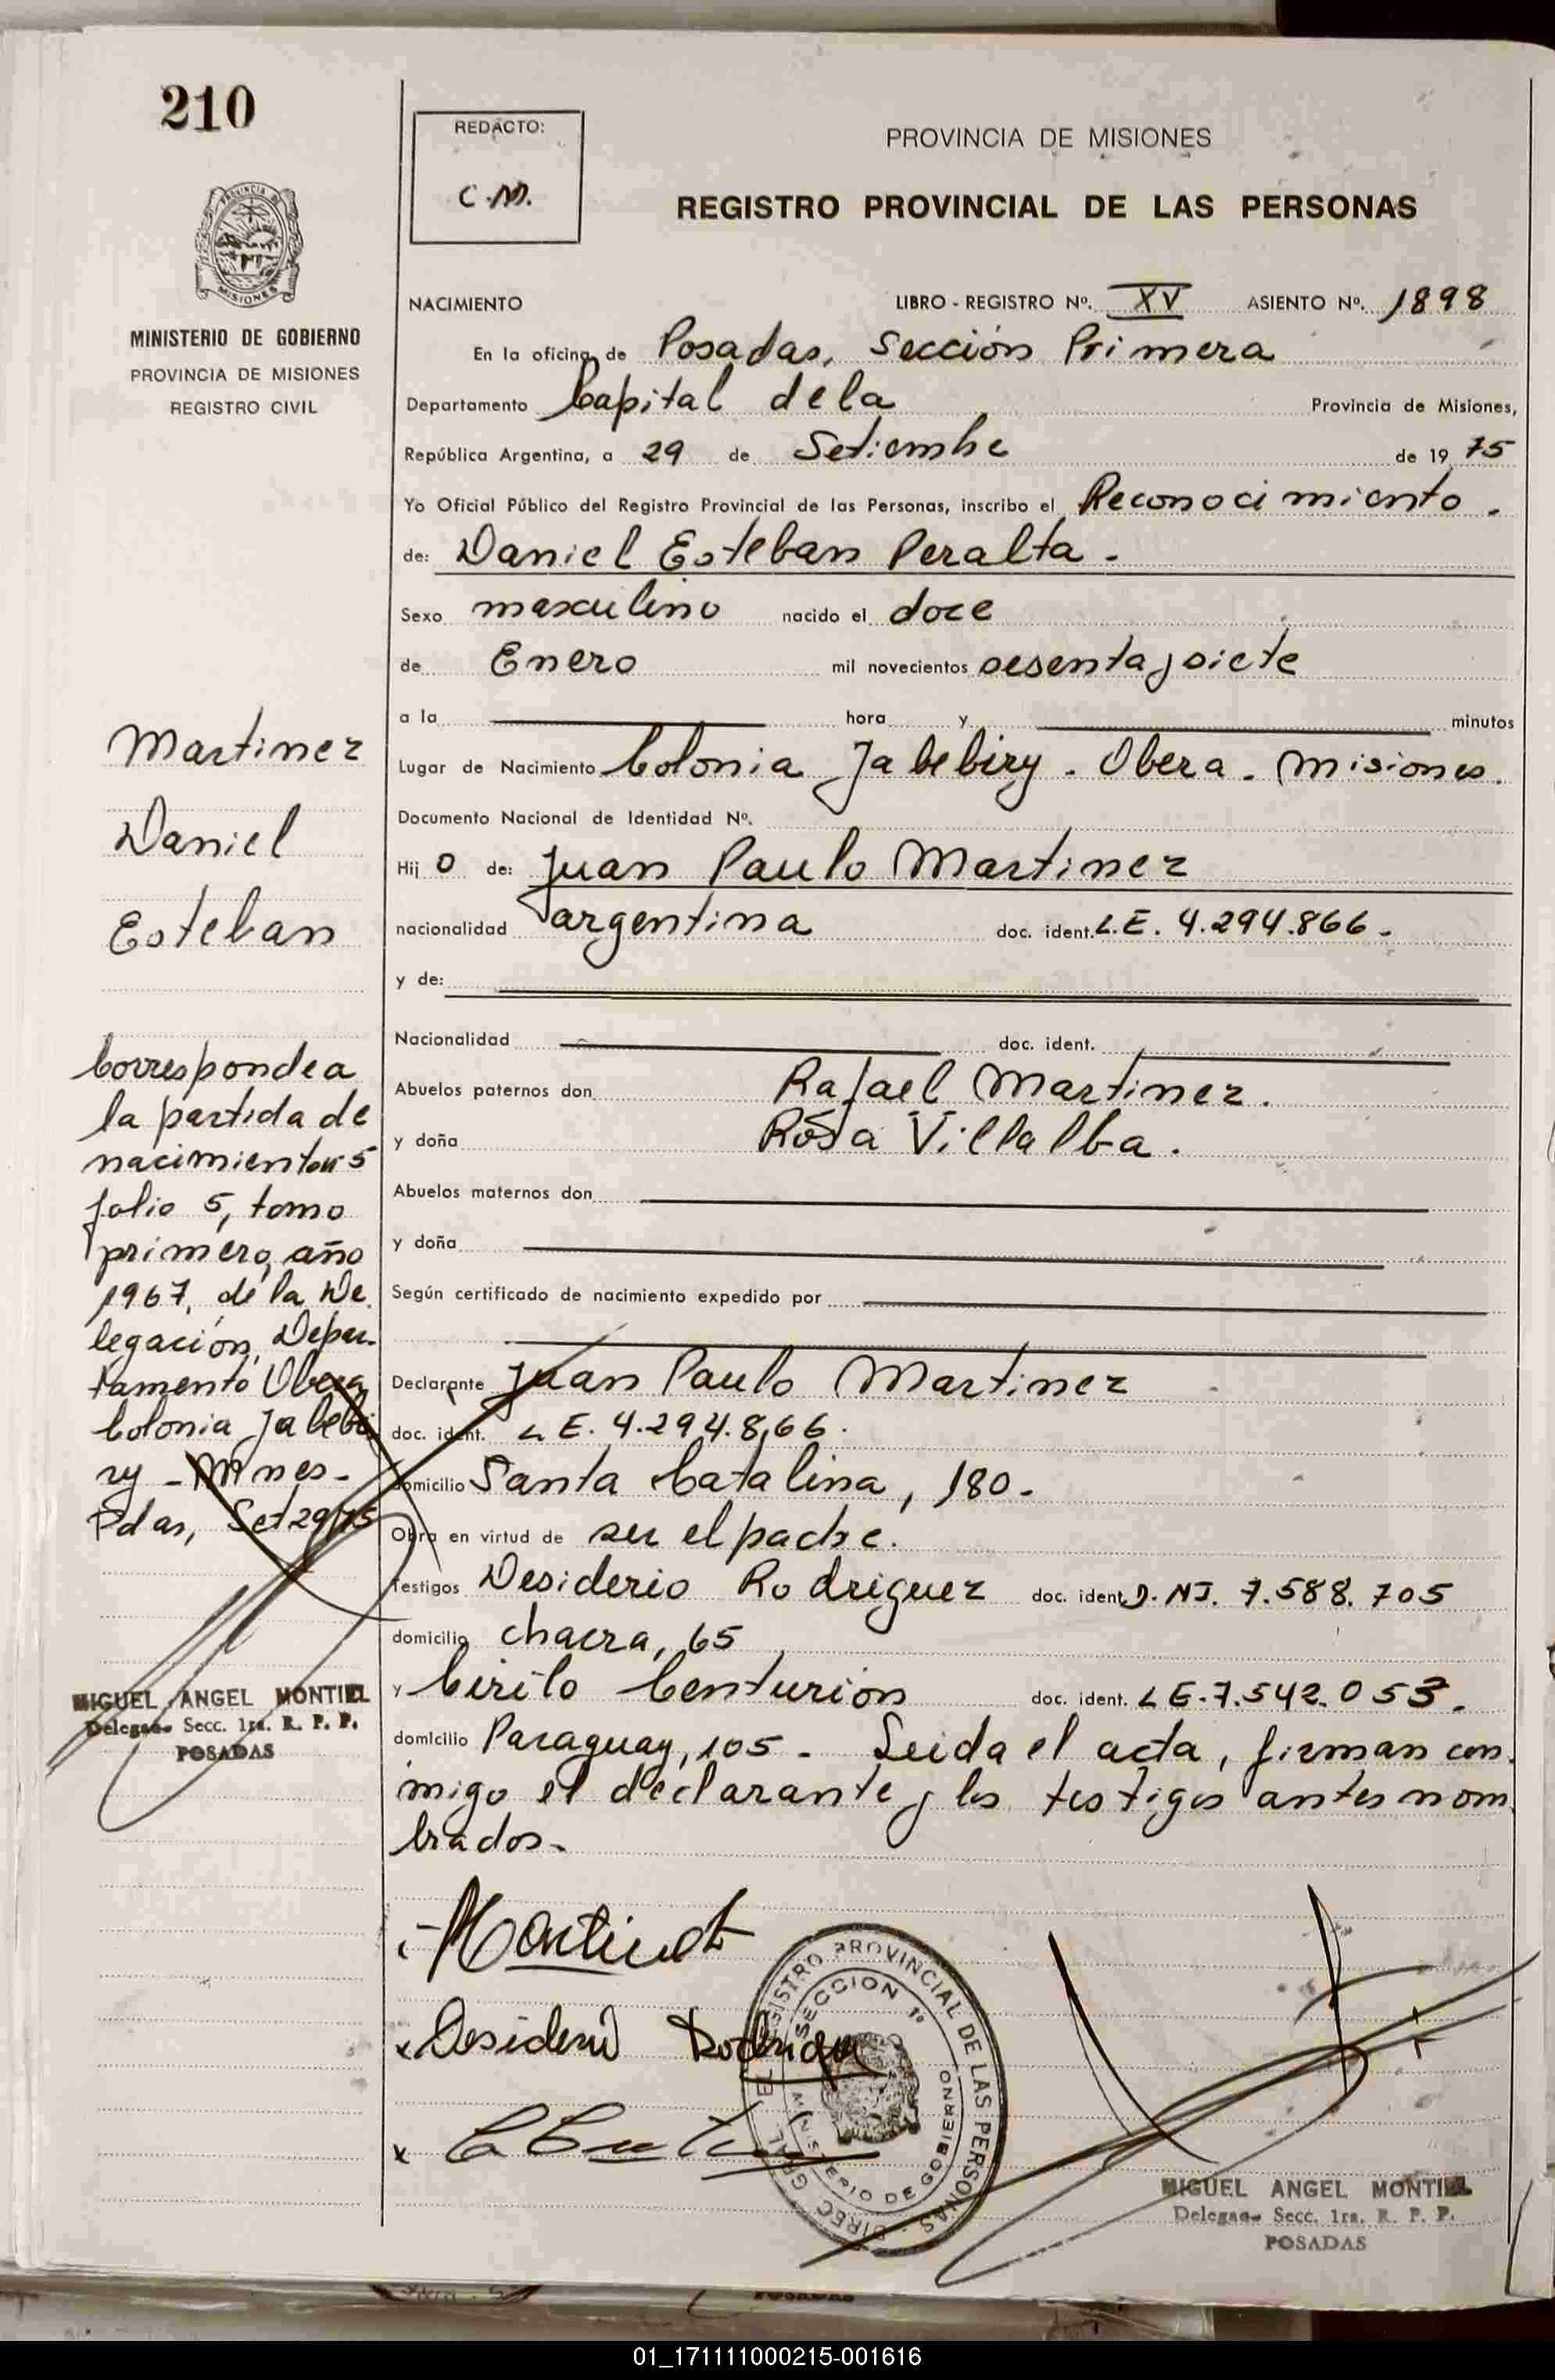 210
REDACTO:
C.M.
PROVINCIA DE MISIONES
REGISTRO PROVINCIAL DE LAS PERSONAS
PROVINCIA DE
MISIONES
MINISTERIO DE GOBIERNO
PROVINCIA DE MISIONES
REGISTRO CIVIL
NACIMIENTO LIBRO - REGISTRO Nº. XV ASIENTO Nº. 1898
En la oficina de Posadas, Sección Primera
Departamento Capital de la Provincia de Misiones,
República Argentina, a 29 de Setiembre de 19 75
Yo Oficial Público del Registro Provincial de las Personas, inscribo el Reconocimiento.
de: Daniel Esteban Peralta.
Sexo masculino nacido el doce
de Enero mil novecientos sesenta y siete
a la hora y minutos
Lugar de Nacimiento Colonia Jabebiry. Obera. Misiones.
Documento Nacional de Identidad Nº.
Hij o de: Juan Paulo Martinez
nacionalidad argentina doc. ident. L.E. 4.294.866.
y de:
Nacionalidad doc. ident.
Abuelos paternos don Rafael Martinez.
y doña Rosa Villalba.
Abuelos maternos don
y doña
Según certificado de nacimiento expedido por
Declarante Juan Paulo Martinez
doc. ident. L E. 4.294.866.
domicilio Santa Catalina, 180.
Obra en virtud de ser el padre.
Testigos Desiderio Rodriguez doc. ident. D.NI. 7.588.705
domicilio chacra, 65
y Cirilo Centurion doc. ident. L E. 7.542.053.
domicilio Paraguay, 105. Leida el acta, firman con
migo el declarante y los testigos antes nom
brados.
Martinez
Daniel
Esteban
Corresponde a
la partida de
nacimiento nº 5
folio 5, tomo
primero, año
1967, de la De
legación, Depar-
tamento Obera
Colonia Jabebi
ry - Mnes-
Pdas, Set 29/75
MIGUEL ANGEL MONTIEL
Delegado Secc. 1ra. R. P. P.
POSADAS
Martinez
x Desiderio Rodrigue
x
DIREC. GRAL. EL REGISTRO PROVINCIAL DE LAS PERSONAS
SECCION 1º
MINISTERIO DE GOBIERNO
MIGUEL ANGEL MONTIEL
Delegado Secc. 1ra. R. P. P.
POSADAS
01_171111000215-001616